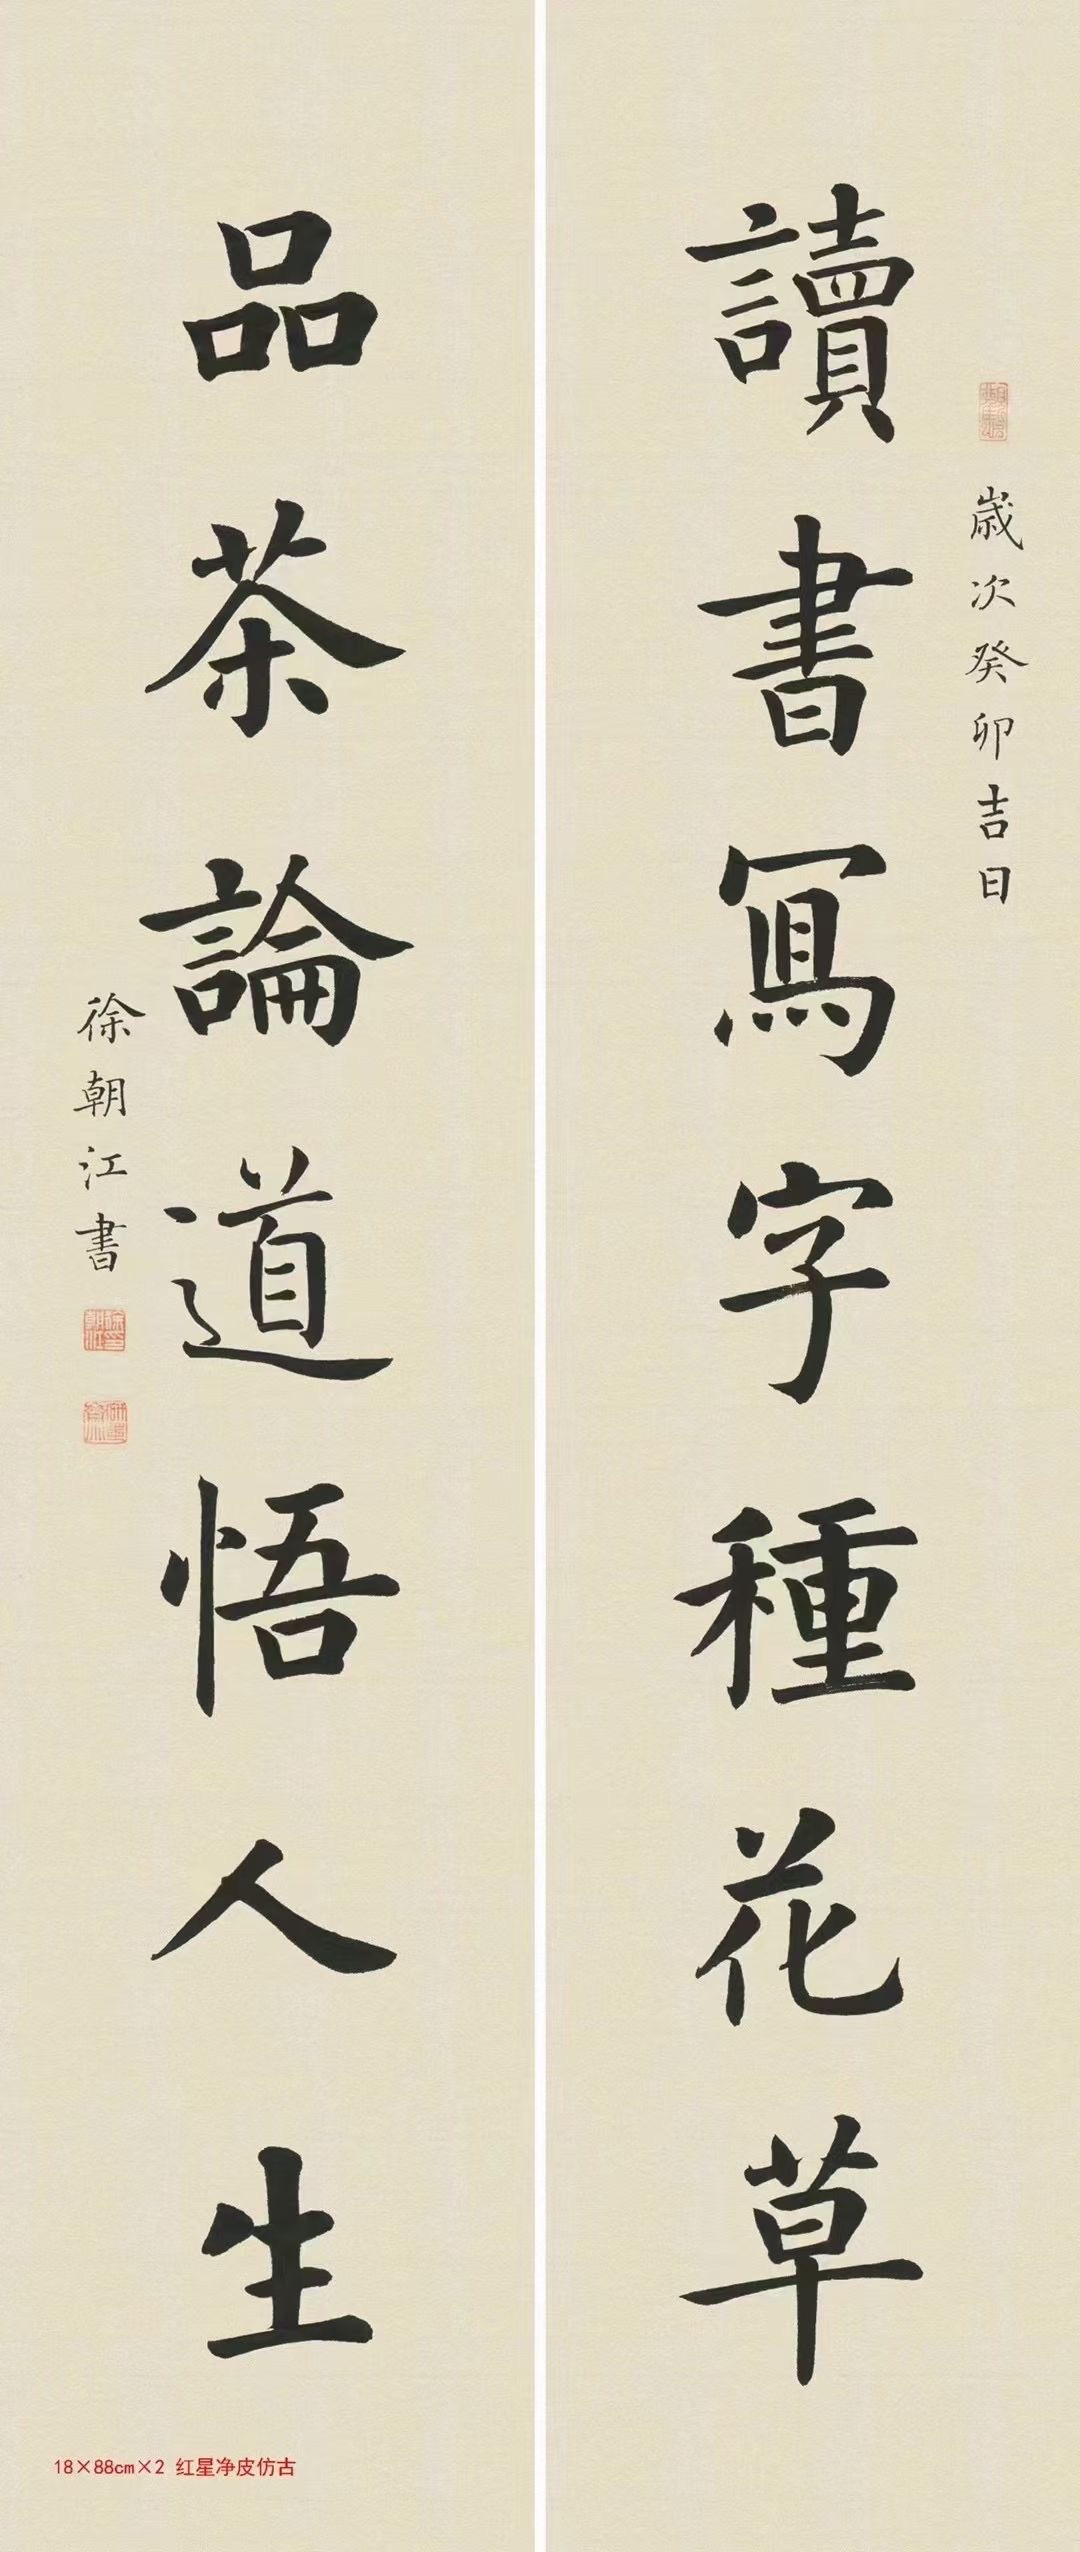 歲次癸卯吉日
讀書寫字種花草
品茶論道悟人生
徐朝江書
18×88cm×2 红星净皮仿古